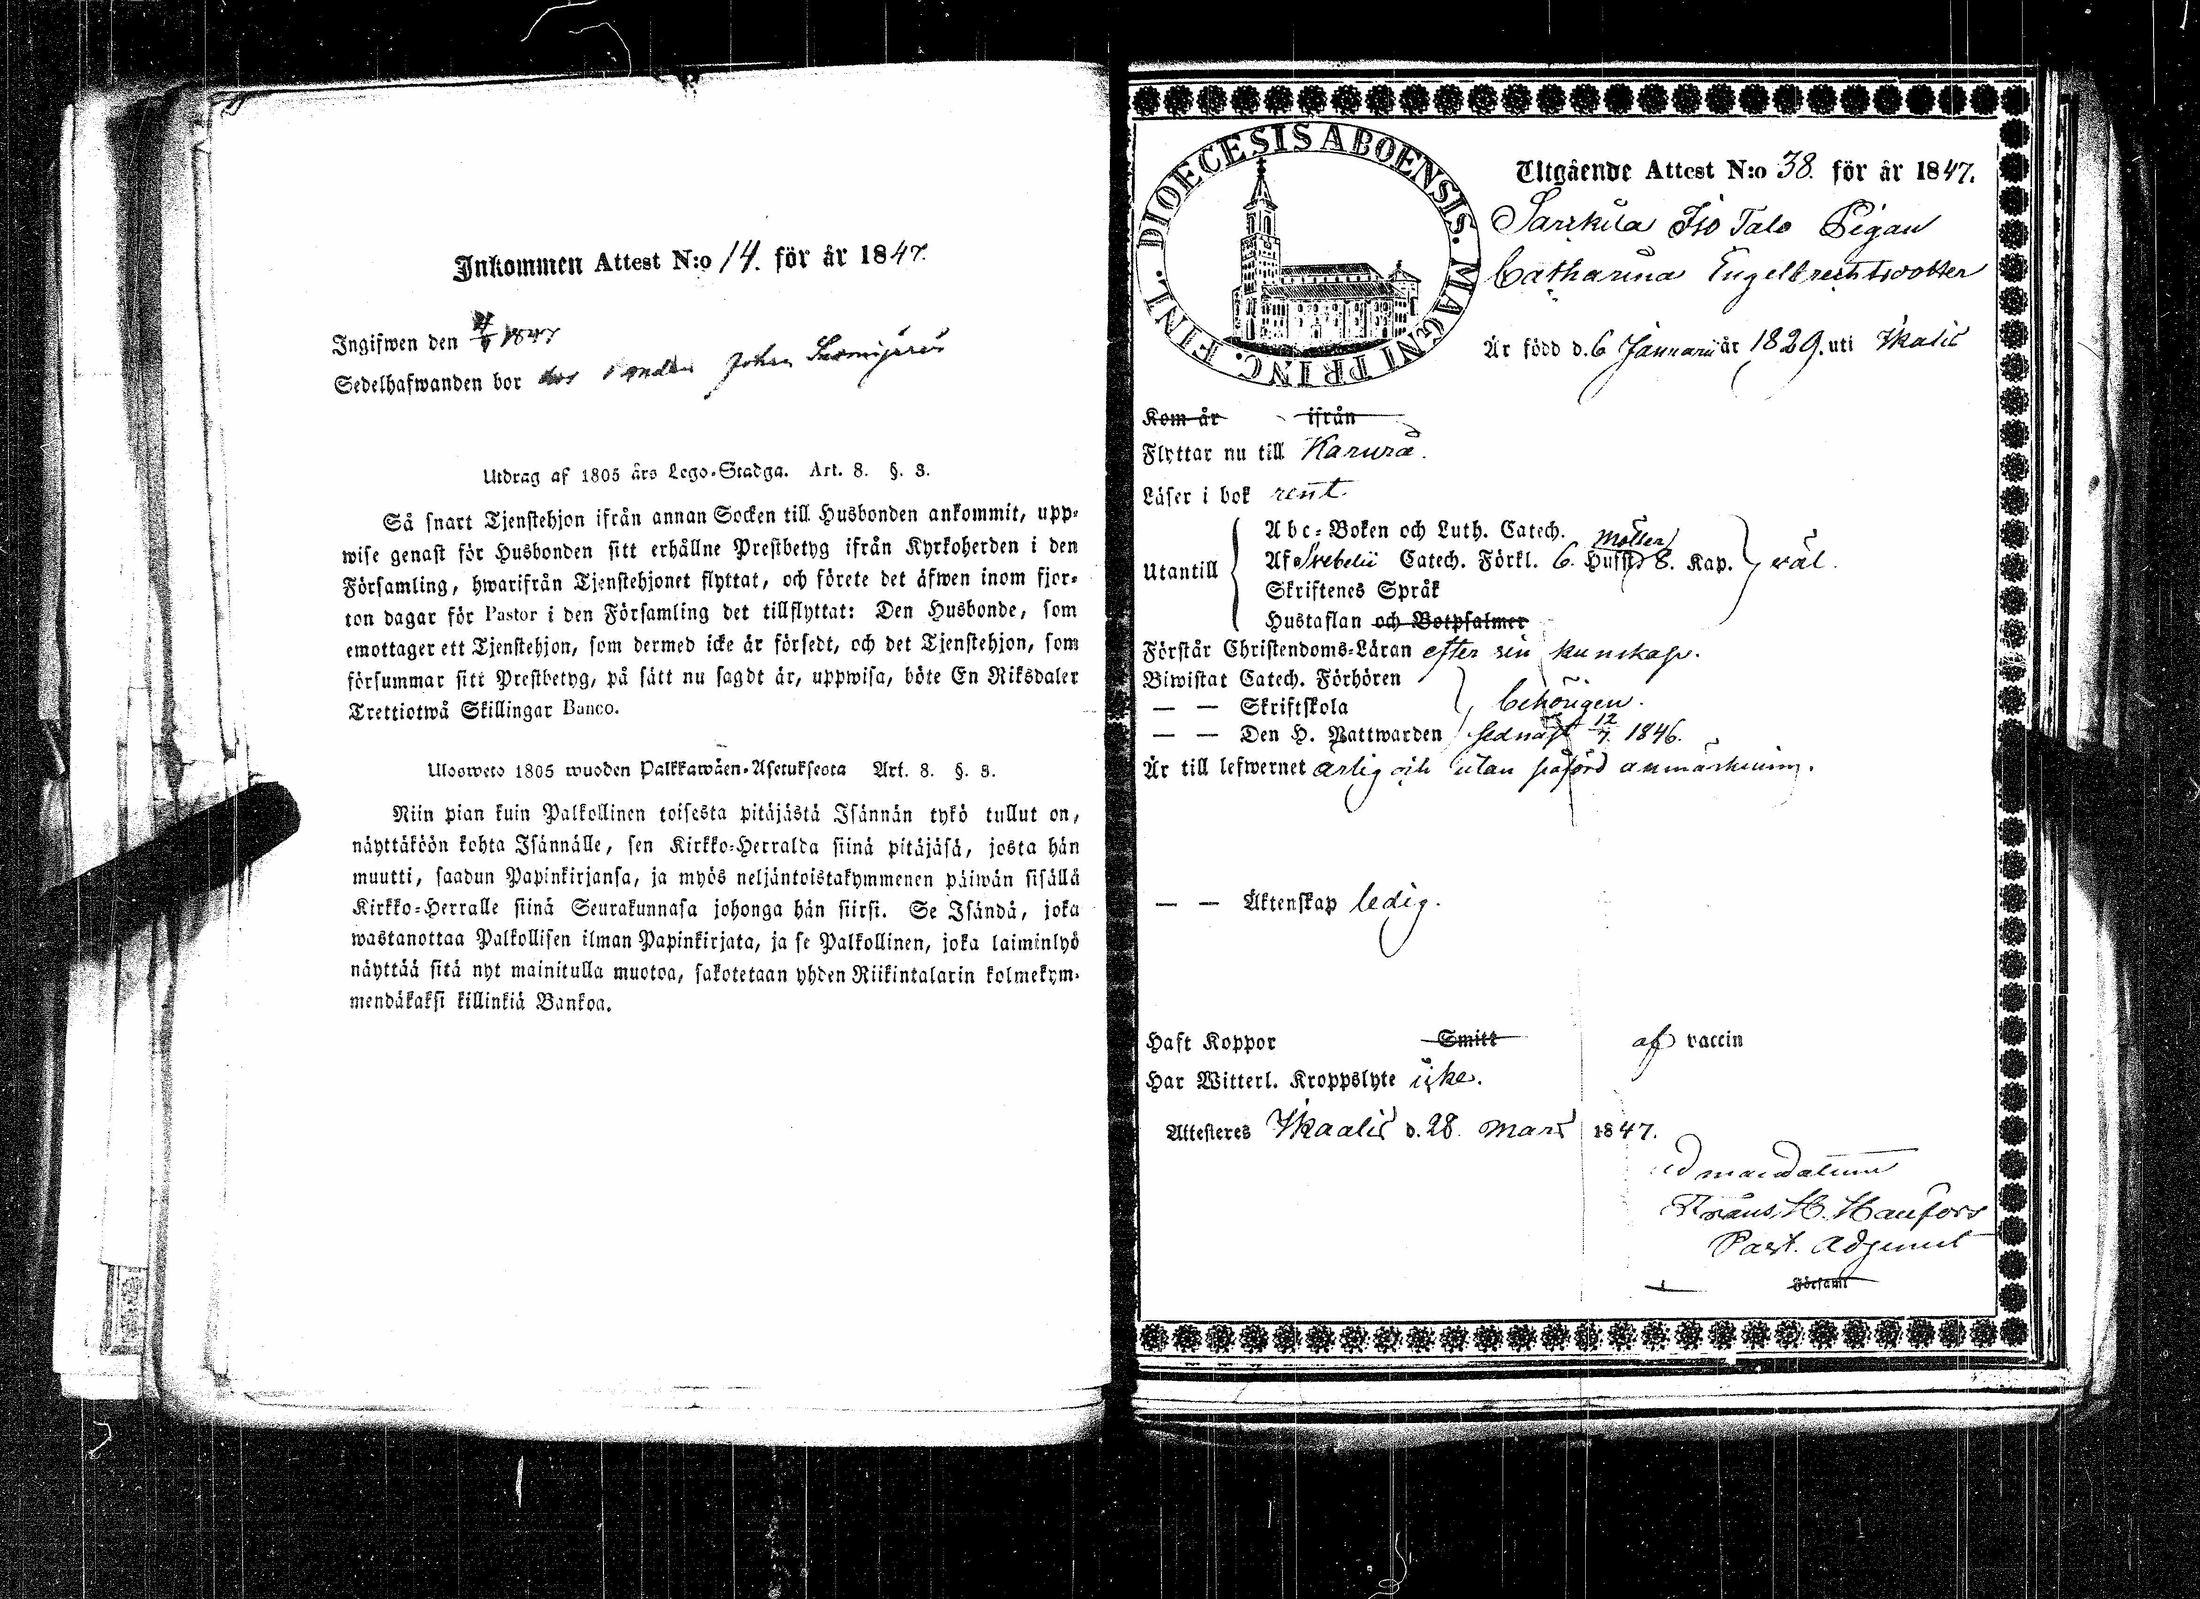 Inkommen Attest N:o 14. för år 1847.
Ingifwen den 1847
Sedelhafwanden bor hos John
Utdrag af 1805 års Lego-Stadga. Art. 8. §. 3.
Så snart Tjenstehjon ifrån annan Socken till Husbonden ankommit, upp-
wise genast för Husbonden sitt erhållne Prestbetyg ifrån Kyrkoherden i den
Församling, hwarifrån Tjenstehjonet flyttat, och förete det äfwen inom fjor-
ton dagar för Pastor i den Församling det tillflyttat: Den Husbonde, som
emottager ett Tjenstehjon, som dermed icke är försedt, och det Tjenstehjon, som
försummar sitt Prestbetyg, på sätt nu sagdt är, uppwisa, böte En Riksdaler
Trettiotwå Skillingar Banco.
Ulosweto 1805 wuoden Palkkawäen-Asetuksesta Art. 8. §. 3.
Niin pian kuin Palkollinen toisesta pitäjästä Isännän tykö tullut on,
näyttäköön kohta Isännälle, sen Kirkko-Herralda siinä pitäjäsä, josta hän
muutti, saadun Papinkirjansa, ja myös neljäntoistakymmenen päiwän sisällä
Kirkko-Herralle siinä Seurakunnasa johonga hän siirsi. Se Isändä, joka
wastanottaa Palkollisen ilman Papinkirjata, ja se Palkollinen, joka laiminlyö
näyttää sitä nyt mainitulla muotoa, sakotetaan yhden Riikintalarin kolmekym-
mendäkaksi killinkiä Bankoa.
DIOECESIS ABOENSIS. MAGNI PRINC. FINL.
Utgående Attest N:o 38. för år 1847.
Sarkila Iso Talo Pigan
Catharina Engelbrechtsdotter
Är född d. 6 Januarii år 1829. uti Ikalis
Kom år ifrån
Flyttar nu till Karuna.
Läser i bok rent
Utantill
Abc-Boken och Luth. Catech.
Af Svebelii Catech. Förkl. 6. Hufst. 8. Kap. väl.
Skriftenes Språk
Hustaflan och Botpsalmer
Förstår Christendoms-Läran efter sin kunskap.
Biwistat Catech. Förhören
— — Skriftskola behörigen.
— — Den H. Nattwarden sednast 12/7 1846.
Är till lefwernet ärlig och utan påförd anmärkning.
— — Äktenskap ledig.
Haft Koppor Smitt af vaccin
Har Witterl. Kroppslyte icke.
Attesteres Ikaalis d. 28. Mars 1847.
Ad mandatum
Frans H. Hanfors
Past. Adjunct
Församl